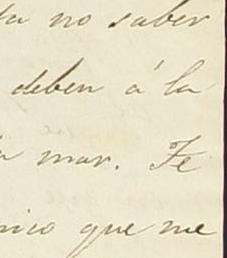 no saber
deben á la
mar. Te
que me